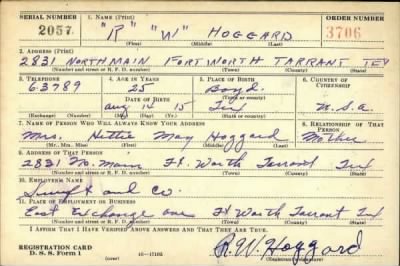 SERIAL NUMBER 1. NAME (Print) ORDER NUMBER
2057 "R" "W" HOGGARD 3706
(First) (Middle) (Last)
2. ADDRESS (Print)
2831 NORTH MAIN FORT WORTH TARRANT TEX
(Number and street or R. F. D. number) (Town) (County) (State)
3. TELEPHONE 4. AGE IN YEARS 5. PLACE OF BIRTH 6. COUNTRY OF CITIZENSHIP
63789 25 Boyd
DATE OF BIRTH (Town or county)
Aug 14 15 Tex U.S.A.
(Exchange) (Number) (Mo.) (Day) (Yr.) (State or country)
7. NAME OF PERSON WHO WILL ALWAYS KNOW YOUR ADDRESS 8. RELATIONSHIP OF THAT PERSON
Mrs. Hettie May Hoggard Mother
(Mr., Mrs., Miss) (First) (Middle) (Last)
9. ADDRESS OF THAT PERSON
2831 No. Main Ft. Worth Tarrant Tex
(Number and street or R. F. D. number) (Town) (County) (State)
10. EMPLOYER'S NAME
Swift and Co.
11. PLACE OF EMPLOYMENT OR BUSINESS
East Exchange ave Ft Worth Tarrant Tex
(Number and street or R. F. D. number) (Town) (County) (State)
I AFFIRM THAT I HAVE VERIFIED ABOVE ANSWERS AND THAT THEY ARE TRUE.
REGISTRATION CARD
D. S. S. Form 1 (over) 16—17105 R.W. Hoggard